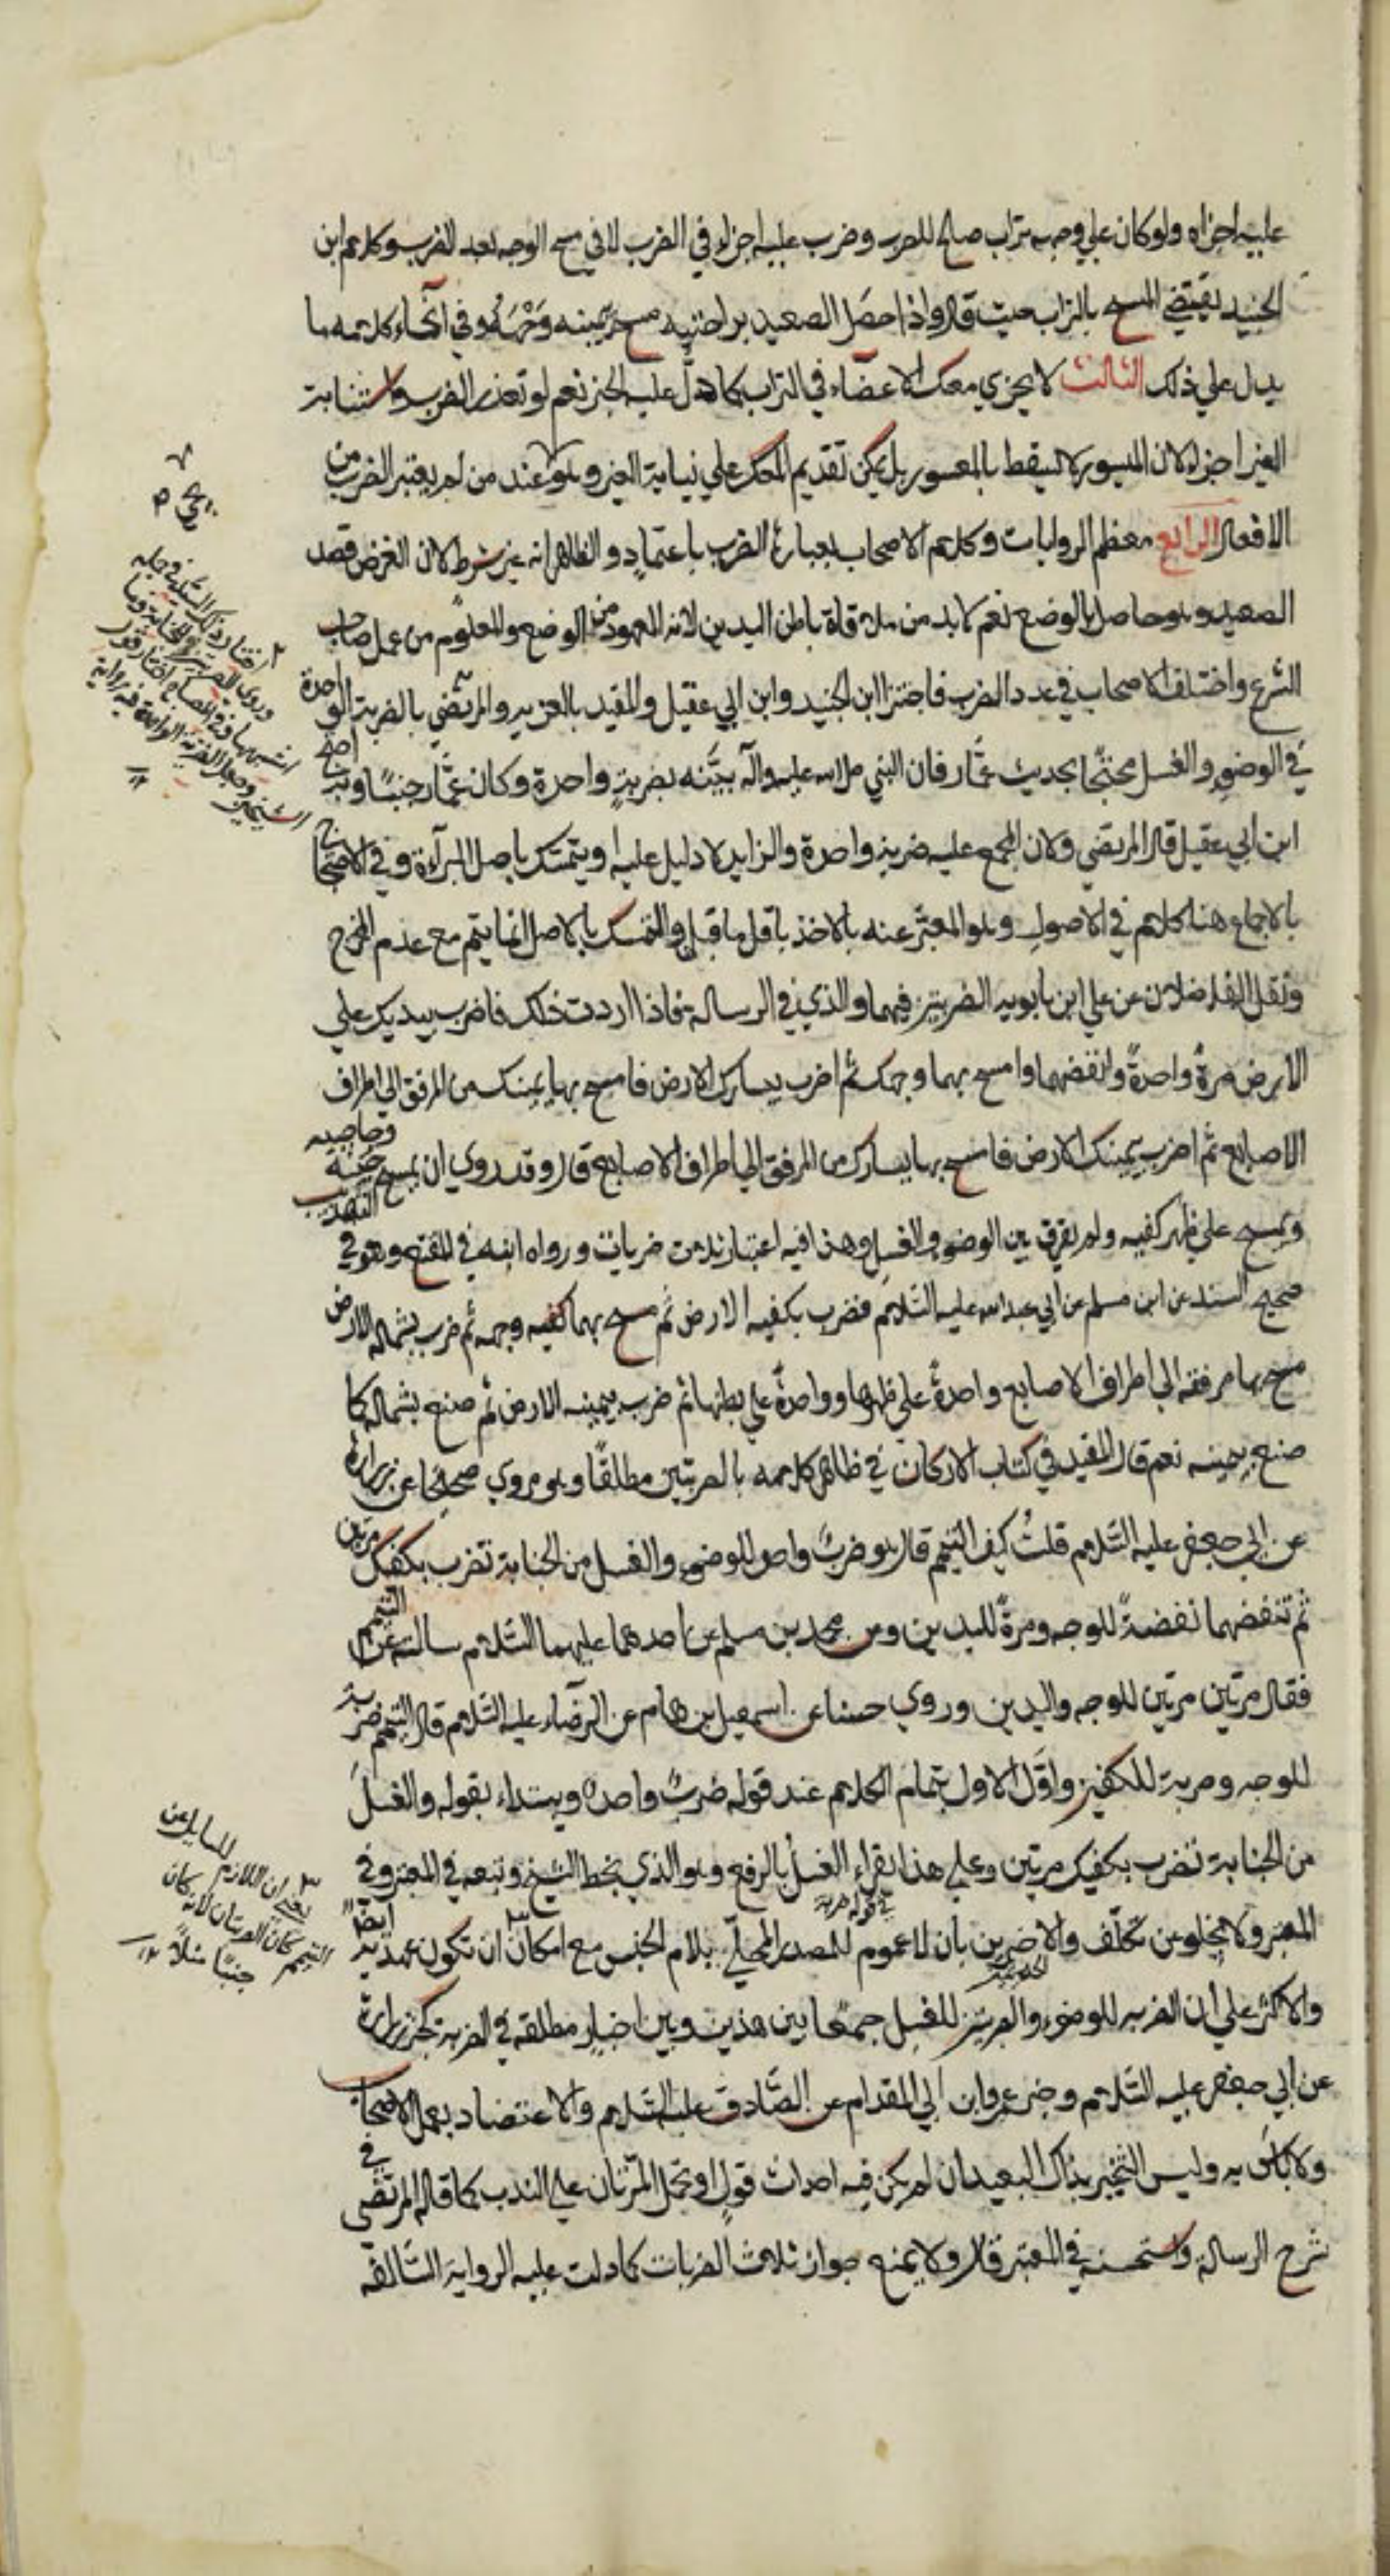 عليه اجزاه ولو كان علي وجهه تراب صالح للضرب وضرب عليه اجزاه في الضرب لا في مسح الوجه بعد الضرب وكلام ابن
الجنيد يقتضي المسح بالتراب حيث قال واذا حصل الصعيد براحتيه مسح بيمينه وجهه وفي اثناء كلامه ما
يدل علي ذلك الثالث لا يجزي معك الاعضاء في التراب كما دل عليه الخبر نعم لو تعذر الضرب واستنابة
الغير اجزا لان الميسور لا يسقط بالمعسور بل يمكن تقديم المعك علي نيابة الغير وهو عند من لم يعتبر الضرب من
الافعال الرابع معظم الروايات وكلام الاصحاب بعبارة الضرب باعتماد والظاهر انه غير شرط لان الغرض قصد
الصعيد وهو حاصل بالوضع نعم لا بد من ملاقاة باطن اليدين لانه المعهود من الوضع والمعلوم من عمل صاحب
الشرع واختلف الاصحاب في عدد الضرب فاجتزا ابن الجنيد وابن ابي عقيل والمفيد بالعزيه والمرتضي بالضربة الواحدة
في الوضوء والغسل محتجا بحديث عمار فان النبي صلي الله عليه واله بينه بضربة واحدة وكان عمار جنبا وبه احتج
ابن ابي عقيل قال المرتضي ولان المجمع عليه ضربة واحدة والزايد لا دليل عليه او يتمسك باصل البراءة وفي الاحتجاج
بالاجماع هنا كلام في الاصول وهو المعبر عنه بالاخذ باقل ما قيل والتمسك بالاصل انما يتم مع عدم المخرج
ونقل الفاضلان عن علي ابن بابويه الضربتين فيهما والذي في الرسالة فاذا اردت ذلك فاضرب بيديك علي
الارض مرة واحدة وانفضهما وامسح بهما وجهك ثم اضرب بيسارك الارض فامسح بها يمينك من المرفق الي اطراف
الاصابع ثم اضرب بيمينك الارض فامسح بها يسارك من المرفق الي اطراف الاصابع قال وقد روي ان يمسح جبينه وحاجبيه
ويمسح علي ظهر كفيه ولم يفرق بين الوضوء والغسل وهذا فيه اعتبار ثلاث ضربات ورواه ابنه في المقنع وهو في التهذيب
صحيح السند عن ابن مسلم عن ابي عبد الله عليه السلام فضرب بكفيه الارض ثم مسح بهما كفيه وجهه ثم ضرب بشماله الارض
مسح بها مرفقه الي اطراف الاصابع واحدة علي ظهرها وواحدة علي بطنها ثم ضرب بيمينه الارض ثم صنع بشماله كما
صنع بيمينه نعم قال المفيد في كتاب الاركان في ظاهر كلامه بالضربتين مطلقا وهو مروي صحيحا عن زرارة
عن ابي جعفر عليه السلام قلت كيف التيمم قال هو ضرب واحد للوضوء والغسل من الجنابة تضرب بكفيك مرتين
ثم تنفضهما نفضة للوجه ومرة لليدين وعن محمد بن مسلم عن احدهما عليهما السلام سالته عن التيمم
فقال مرتين مرتين للوجه واليدين وروي حسنا عن اسمعيل بن همام عن الرضاء عليه السلام قال التيمم ضربة
للوجه وضربة للكفين واول الاول بتمام الكلام عند قوله ضرب واحد ويبتداء بقوله والغسل
من الجنابة تضرب بكفيك مرتين وعلي هذا يقراء الغسل بالرفع وهو الذي بخط الشيخ وتبعه في المعتبر وفي
المعتبر ولا يخلو من تكلف والاخرين بان لا عموم للمصدر المحلي بلام الجنس مع امكان ان تكون عهدية ايضا
في قوله ضربة
والاكثر علي ان الضربه للوضوء والضربتين للغسل جمعا بين هذين وبين اخبار مطلقه في الضربة كخبر زرارة
عن ابي جعفر عليه السلام وخبر عمرو ابن ابي المقدام عن الصادق عليه السلام والاعتضاد بعمل الاصحاب
ولا باس به وليس التخيير بذاك البعيد ان لم يكن فيه احداث قول او تحمل المرتان علي الندب كما قاله المرتضي في
شرح الرسالة واستحسنه في المعتبر قال ولا يمنع جواز ثلاث الضربات كما دلت عليه الرواية السالفه
الشيخين وجعل الضربة الواحدة في رواية
يعني ان اللازم للسايل عن
التيمم كان الضربتان لانه كان
جنبا مثلا ١٢